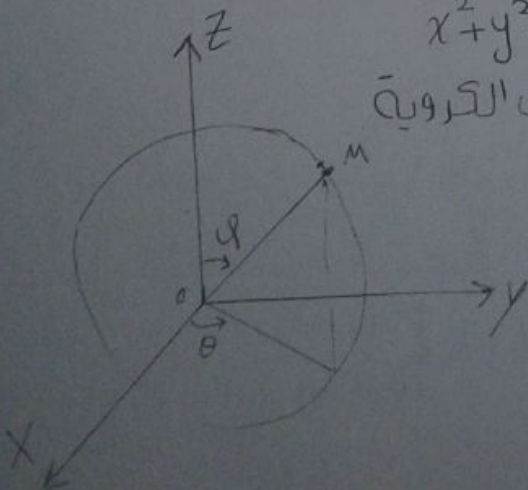 x²+y²
الكروية
Z
M
φ
o
Y
θ
X